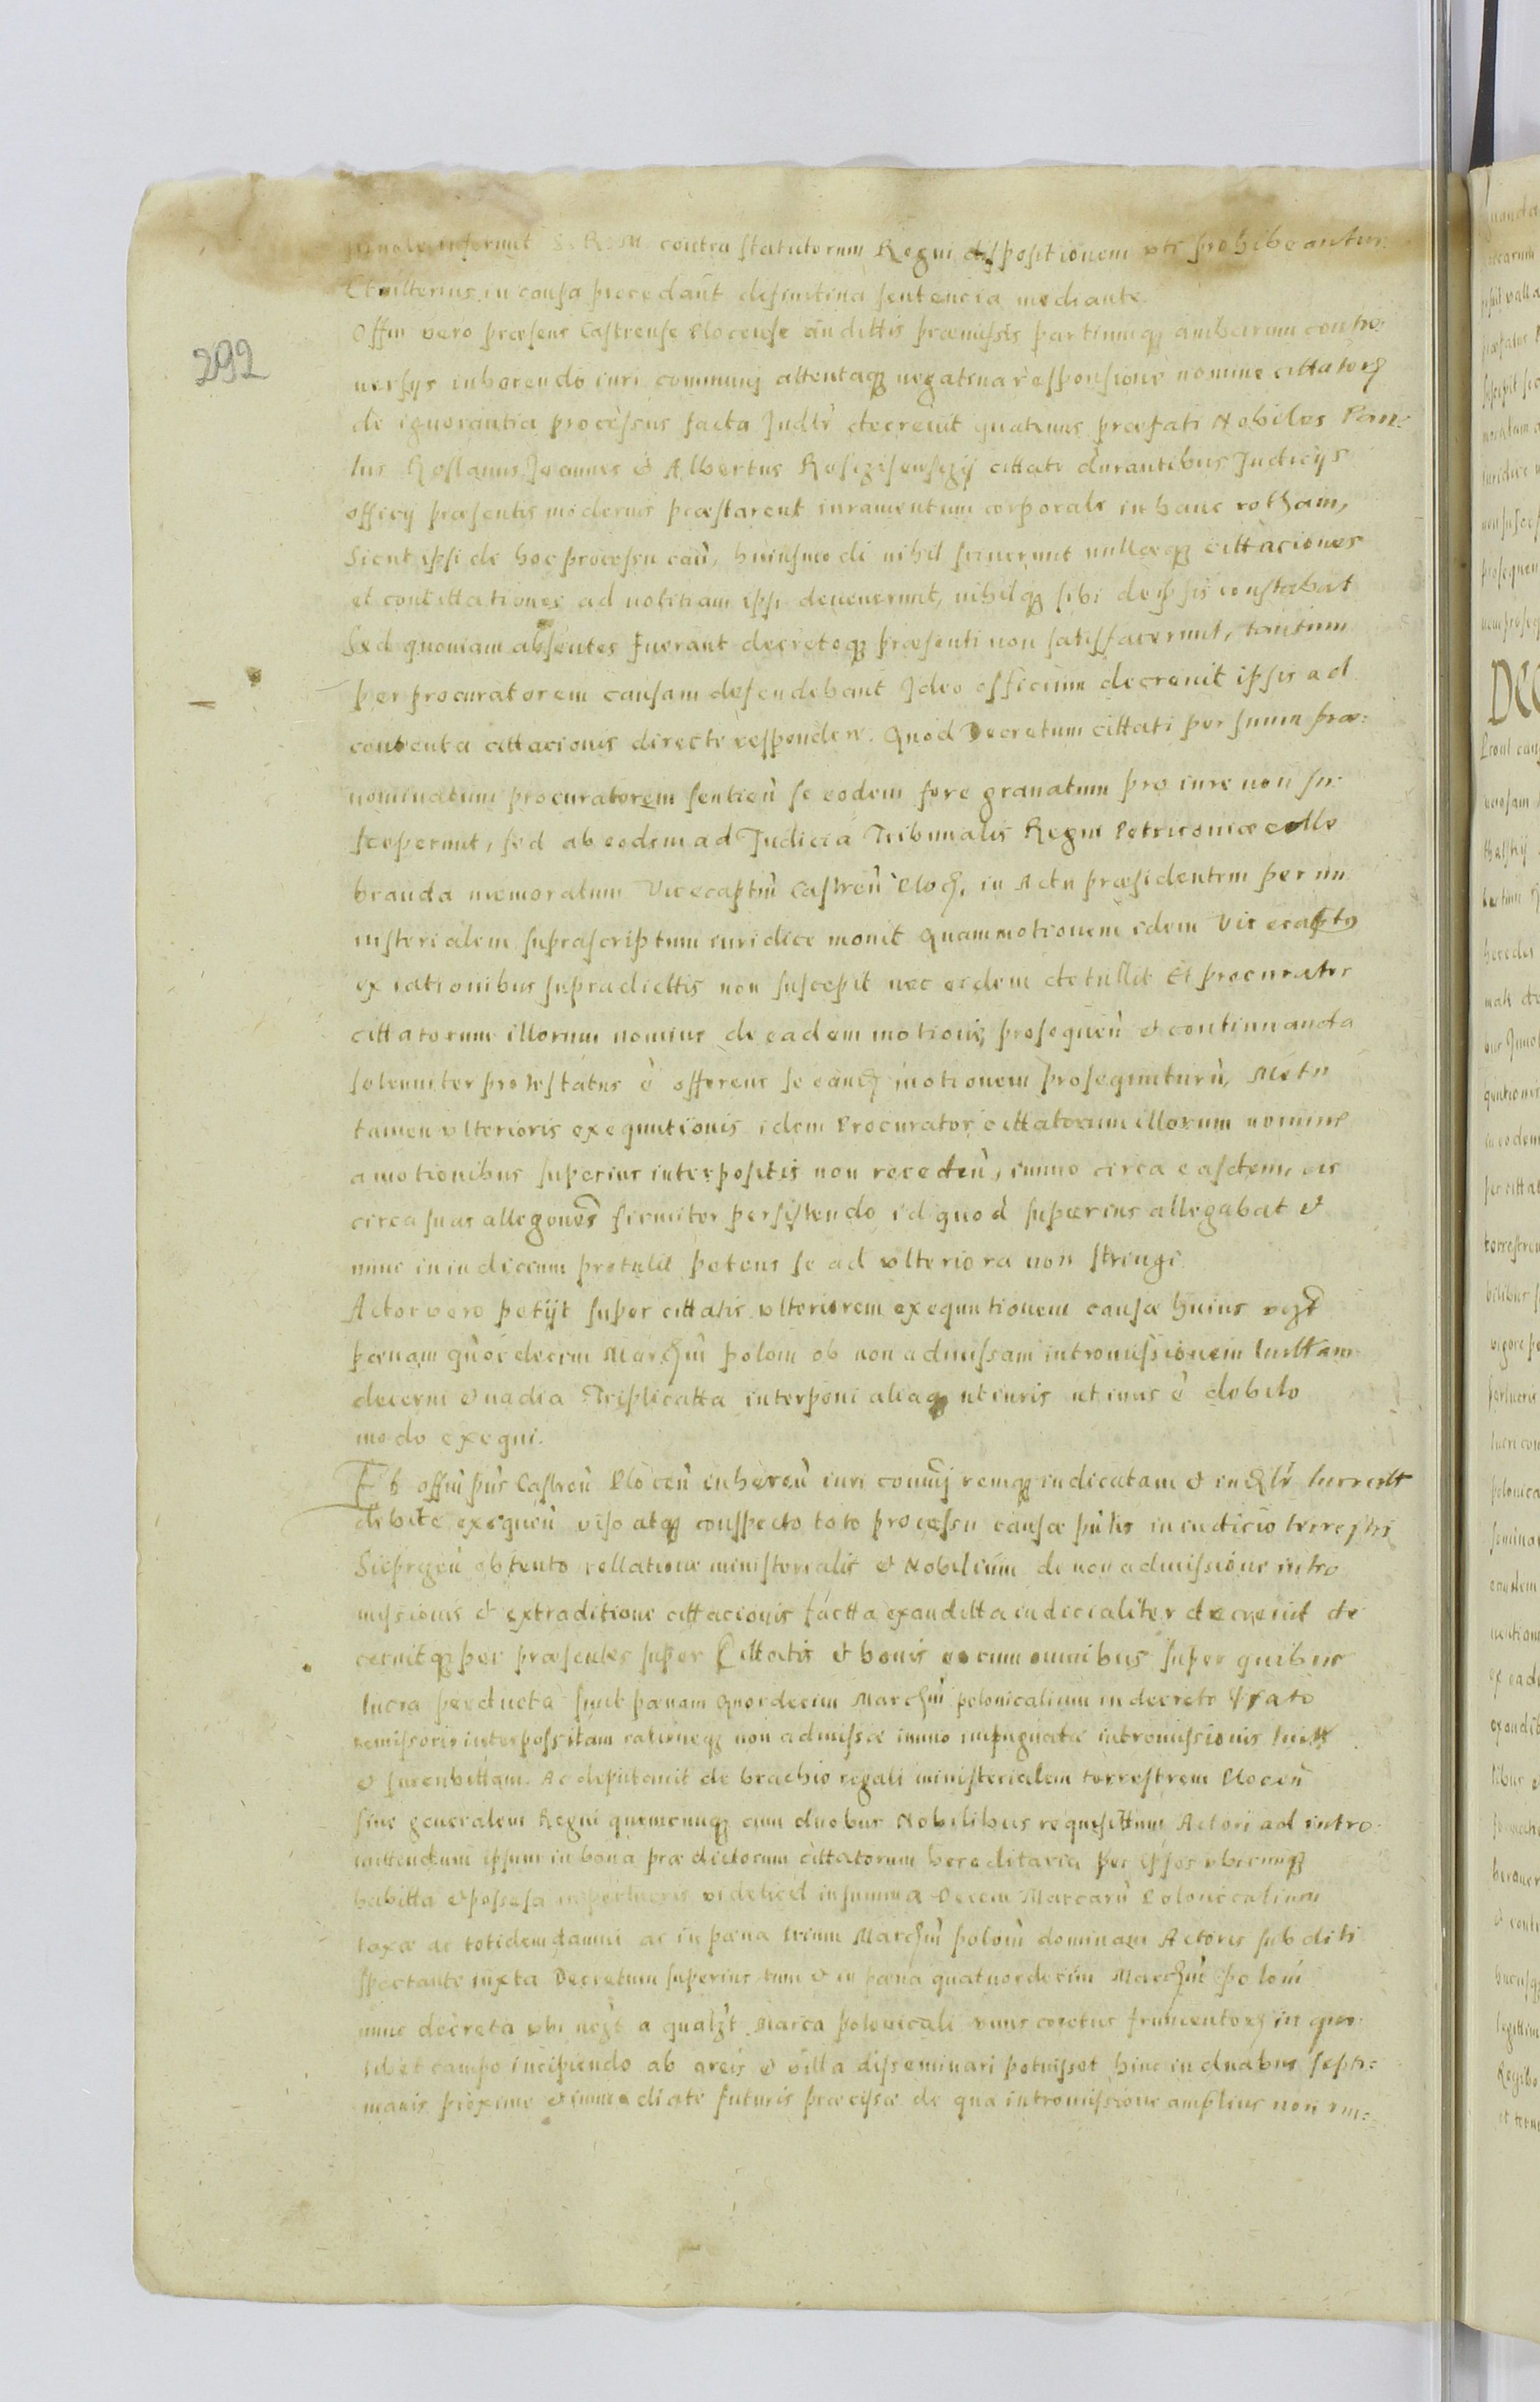 contra statutorum Regni dispositionem uti prohibeantur.
Et ulterius in causa procedant definitiva sententia mediante.
Offm vero præsens Castrense Plocense audittis præmissis partiumq3 ambarum contro
versys inhærendo iuri communj attentaq3 negativa responsione nomine cittator
de ignorantia processus facta Judlr decrevit quatenus præfati Nobiles Pau:
lus Joannes & Albertus cittati durantibus Judicijs
officij præsentis modernis præstarent iuramentum corporale in hanc rotham,
Sicut ipsi de hoc processu cau, huiusmodi nihil sciverunt nullæq3 cittaciones
et concittationes ad notitiam ipsis devenerunt, nihilq3 sibi de ipsis constabat
Sed quoniam absentes fuerant decretoq3 præsenti non satisfacerunt, tantum
per procuratorem causam defendebant Ideo officium decrevit ipsis ad
contenta cittacionis directe respondere. Quod Decretum cittati per suum præ:
nominatum procuratorem sentieñ se eodem fore gravatum pro iure non su
sceperunt, sed ab eodem ad Judicia Tribunalis Regni Petricoviæ celle
branda memoratum Vicecaptm Castreñ Ploc, in Actu præsidentem per mi
nisterialem suprascriptum iuridice movit Quam motionem idem Vicecaptus
ex rationibus supradicttis non suscepit nec eidem detullit Et procurator
cittatorum illorum nomine de eadem motione proseqneñ et continuanda
solenniter protestatus ē offerens se eand motionem prosequuturū, Metu
tamen ulterioris exequutionis idem Procurator cittatorum illorum nomine
a motionibus superius interpositis non recedeñ, immo circa easdem,
circa suas allegones firmiter persistendo id quod superius allegabat et
nunc in iudicium protulit petens se ad ulteriora non stringi
Actor vero petijt super cittatis ulteriorem exequutionem causæ huius
pænam quordecim Marchū polon ob non admissam intromissionem luittam
decerni & vadia Triplicatta interponi aliaq3 ut iuris ut inus ē debito
modo exequi.
Et offm pūs Castreñ Ploceñ inhæreñ iuri commj remq3 iudicatam &
debite exequeñ viso atq3 conspecto toto processu causæ pntis in iudicio terrestri
obtento rellatione ministerialis & Nobilium de non admissione intro
missionis & extraditione cittacionis factta exauditta iudicialiter decrevit de
cernitq3 per præsentes super Cittatis & bonis eorum omnibus super quibus
lucra perducta sunt pænam quordecim Marchū polonicalium in decreto
remissorio interpossitam rationeq3 non admissæ immo impugnatæ intromissionis
& Ac deputavit de brachio regali ministerialem terrestrem Ploceñ
sive generalem Regni quemcunq3 cum duobus Nobilibus requisittum Actori ad intro
mittendum ipsum in bona prædictorum cittatorum hereditaria per ipsos ubicunq3
habitta & possesa videlicet in summa Decem Marcarū Polonicalium
taxæ ac totidem damni ac in pæna trium Marchū polon dominam Actoris subditi
spectante iuxta Decretum superius tum & in pæna quatuordecim Marchū polon
nunc decreta ubi a Marca polonicali unus coretus frumentor in quo
libet campo incipiendo ab areis & villa disseminari potuisset hinc in duabus septi:
manis proxime & immediate futuris præcisæ de qua intromissione amplius non
292